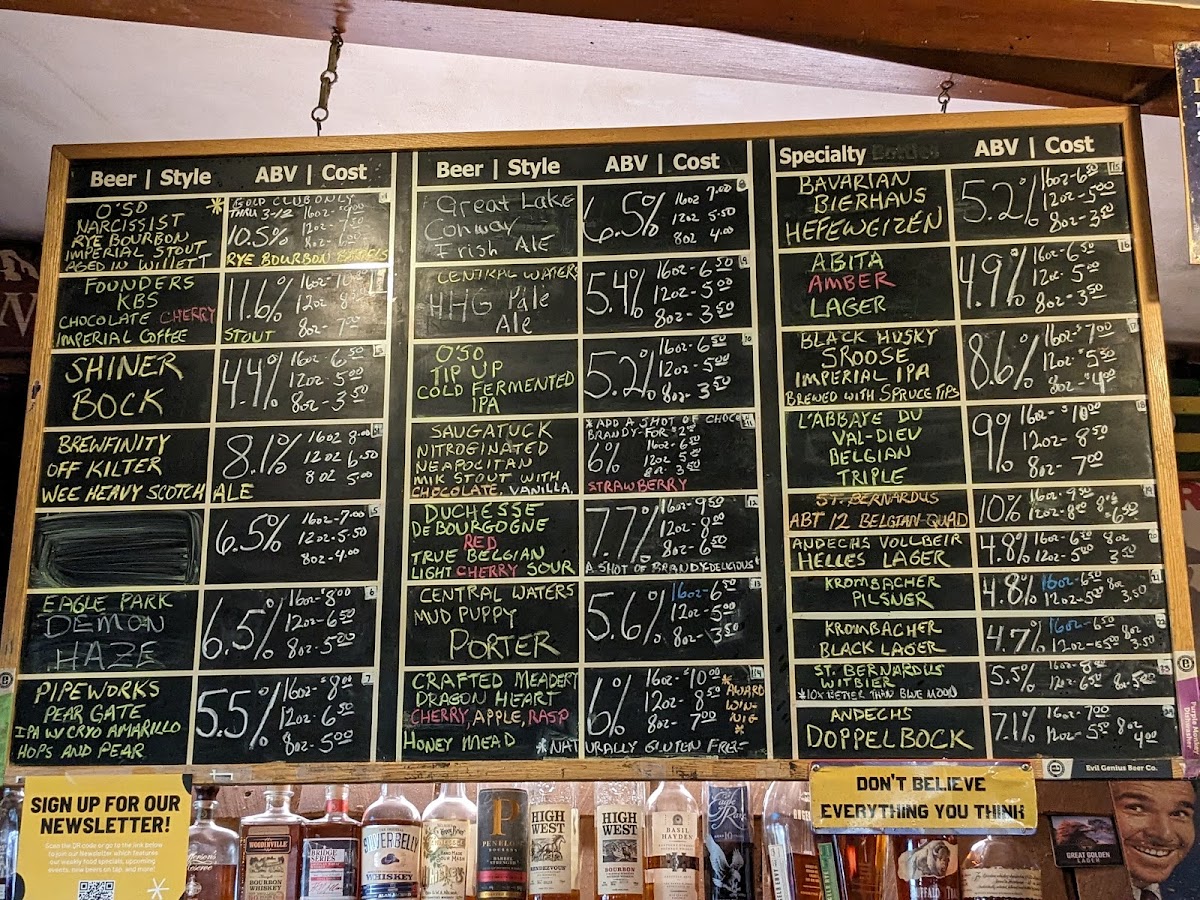 Beer | Style
ABV | Cost
O'SO
NARCISSIST
RYE BOURBON
IMPERIAL STOUT
AGED IN WILLETT
GOLD CLUB ONLY
THRU 3-12
10.5%
12oz - 7.50
RYE BOURBON BARRELS
FOUNDERS
KBS
CHOCOLATE CHERRY
IMPERIAL COFFEE
STOUT
11.6%
8oz - 7.00
SHINER
BOCK
4.4%
16oz - 6.50
12oz - 5.00
8oz - 3.50
BREWFINITY
OFF KILTER
WEE HEAVY SCOTCH ALE
8.1%
16oz 8.00
12oz 6.50
8oz 5.00
6.5%
16oz - 7.00
12oz - 5.50
8oz - 4.00
EAGLE PARK
DEMON
HAZE
6.5%
16oz - 8.00
12oz - 6.50
8oz - 5.00
PIPEWORKS
PEAR GATE
IPA W/ CRYO AMARILLO
HOPS AND PEAR
5.5%
16oz - $8.00
12oz - 6.50
8oz - 5.00
Beer | Style
ABV | Cost
Great Lake
Conway
Irish Ale
6.5%
16oz 7.00
12oz 5.50
8oz 4.00
CENTRAL WATERS
HHG Pale
Ale
5.4%
16oz - 6.50
12oz - 5.00
8oz - 3.50
O'SO
TIP UP
COLD FERMENTED
IPA
5.2%
16oz - 6.50
12oz - 5.00
8oz - 3.50
SAUGATUCK
NITROGINATED
NEAPOLITAN
MIK STOUT WITH
CHOCOLATE, VANILLA,
* ADD A SHOT OF CHOCO
BRANDY - FOR $2.50
6%
16oz - 6.50
12oz 5.00
8oz - 3.50
STRAWBERRY
DUCHESSE
DEBOURGOGNE
RED
TRUE BELGIAN
LIGHT CHERRY SOUR
7.7%
16oz - 9.50
12oz - 8.00
8oz - 6.50
A SHOT OF BRANDY-DELICIOUS*
CENTRAL WATERS
MUD PUPPY
PORTER
5.6%
16oz - 6.50
12oz - 5.00
8oz - 3.50
CRAFTED MEADERY
DRAGON HEART
CHERRY, APPLE, RASP
HONEY MEAD
6%
16oz - $10.00
12oz - 8.50
8oz - 7.00
* AWARD
WIN-
NIG
*
*NATURALLY GLUTEN FREE
Specialty
ABV | Cost
BAVARIAN
BIERHAUS
HEFEWEIZEN
5.2%
16oz - 6.50
12oz - 5.00
8oz - 3.50
ABITA
AMBER
LAGER
4.9%
16oz - 6.50
12oz - 5.00
8oz - 3.50
BLACK HUSKY
SPROOSE
IMPERIAL IPA
BREWED WITH SPRUCE TIPS
8.6%
16oz - $7.00
12oz - $5.50
8oz - $4.00
L'ABBAYE DU
VAL-DIEU
BELGIAN
TRIPLE
9%
16oz - $10.00
12oz - 8.50
8oz - 7.00
ST. BERNARDUS
ABT 12 BELGIAN QUAD
10%
16oz - 9.50
12oz - 8.00
6.50
ANDECHS VOLLBEIR
HELLES LAGER
4.8%
16oz - 6.50 8oz
12oz - 5.00 3.50
KROMBACHER
PILSNER
4.8%
16oz - 6.50
12oz - 5.00 8oz 3.50
KROMBACHER
BLACK LAGER
4.7%
16oz - 6.50
8oz 3.50
ST. BERNARDUS
WITBIER
*10X BETTER THAN BLUE MOON
5.5%
ANDECHS
DOPPELBOCK
7.1%
16oz - 7.00
12oz - 5.50 8oz 4.00
Evil Genius Beer Co.
Purple Monkey
Dishwasher
SIGN UP FOR OUR
NEWSLETTER!
Scan the QR code or go to the link below
to join our Newsletter which features
our weekly food specials, upcoming
events, new beers on tap, and more!
DON'T BELIEVE
EVERYTHING YOU THINK
WOODINVILLE
BOURBON
WHISKEY
BRIDGE
SERIES
SILVER BELLY
WHISKEY
P
PENELOPE
BOURBON
BARREL
STRENGTH
HIGH
WEST
RENDEZVOUS
HIGH
WEST
BOURBON
BASIL
HAYDEN
GREAT GOLDEN
LAGER